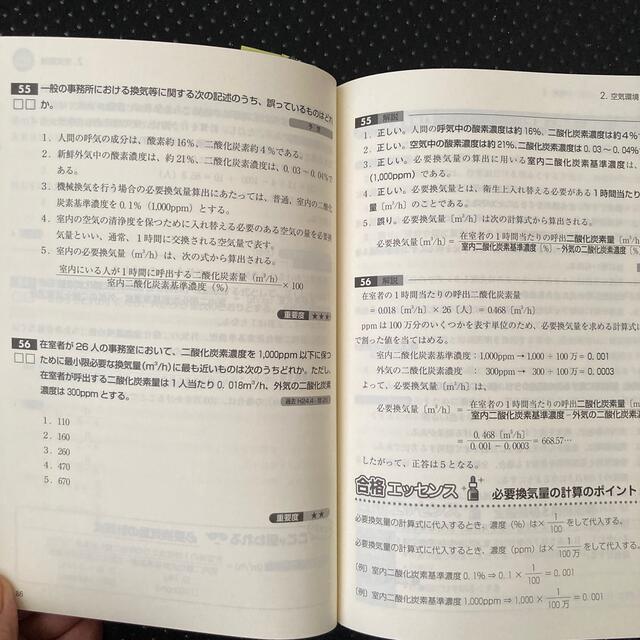 55 一般の事務所における換気等に関する次の記述のうち、誤っているものはどれ
か。
予想
1．人間の呼気の成分は、酸素約16％、二酸化炭素約4％である。
2．新鮮外気中の酸素濃度は、約21％、二酸化炭素濃度は、0.03～0.04％で
ある。
3．機械換気を行う場合の必要換気量算出にあたっては、普通、室内の二酸化
炭素基準濃度を0.1％（1,000ppm）とする。
4．室内の空気の清浄度を保つために入れ替える必要のある空気の量を必要換
気量といい、通常、1時間に交換される空気量で表す。
5．室内の必要換気量（m³/h）は、次の式から算出される。
室内にいる人が1時間に呼出する二酸化炭素量（m³/h）
室内二酸化炭素基準濃度（％） ×100
重要度 ★★★
56 在室者が26人の事務室において、二酸化炭素濃度を1,000ppm以下に保つ
ために最小限必要な換気量（m³/h）に最も近いものは次のうちどれか。ただし、
在室者が呼出する二酸化炭素量は1人当たり0.018m³/h、外気の二酸化炭素
濃度は300ppmとする。
過去 H24.4
1．110
2．160
3．260
4．470
5．670
重要度 ★★
86
2．空気環境
55 解説
1．正しい。人間の呼気中の酸素濃度は約16％、二酸化炭素濃度は約4％
2．正しい。空気中の酸素濃度は約21％、二酸化炭素濃度は0.03～0.04％
3．正しい。必要換気量の算出に用いる室内二酸化炭素基準濃度は、
（1,000ppm）である。
4．正しい。必要換気量とは、衛生上入れ替える必要がある1時間当たり
量〔m³/h〕のことである。
5．誤り。必要換気量〔m³/h〕は次の計算式から算出される。
必要換気量〔m³/h〕＝ 在室者の1時間当たりの呼出二酸化炭素量〔m³/h〕
室内二酸化炭素基準濃度〔％〕－外気の二酸化炭素濃度〔％〕
56 解説
在室者の1時間当たりの呼出二酸化炭素量
＝0.018〔m³/h〕×26〔人〕＝0.468〔m³/h〕
ppmは100万分のいくつかを表す単位のため、必要換気量を求める計算式に
で割った値を当てはめる。
室内二酸化炭素基準濃度：1,000ppm→1,000÷100万＝0.001
外気の二酸化炭素濃度 ： 300ppm→ 300÷100万＝0.0003
よって、必要換気量〔m³/h〕は、
必要換気量〔m³/h〕＝ 在室者の1時間当たりの呼出二酸化炭素量〔m³
室内二酸化炭素基準濃度－外気の二酸化炭素濃
＝ 0.468〔m³/h〕
0.001－0.0003 ＝668.57…
したがって、正答は5となる。
合格エッセンス 必要換気量の計算のポイント
必要換気量の計算式に代入するとき、濃度（％）は× 1/100 をして代入する。
必要換気量の計算式に代入するとき、濃度（ppm）は× 1/100万 をして代入する。
（例）室内二酸化炭素基準濃度0.1％⇒0.1× 1/100 ＝0.001
（例）室内二酸化炭素基準濃度1,000ppm⇒1,000× 1/100万 ＝0.001